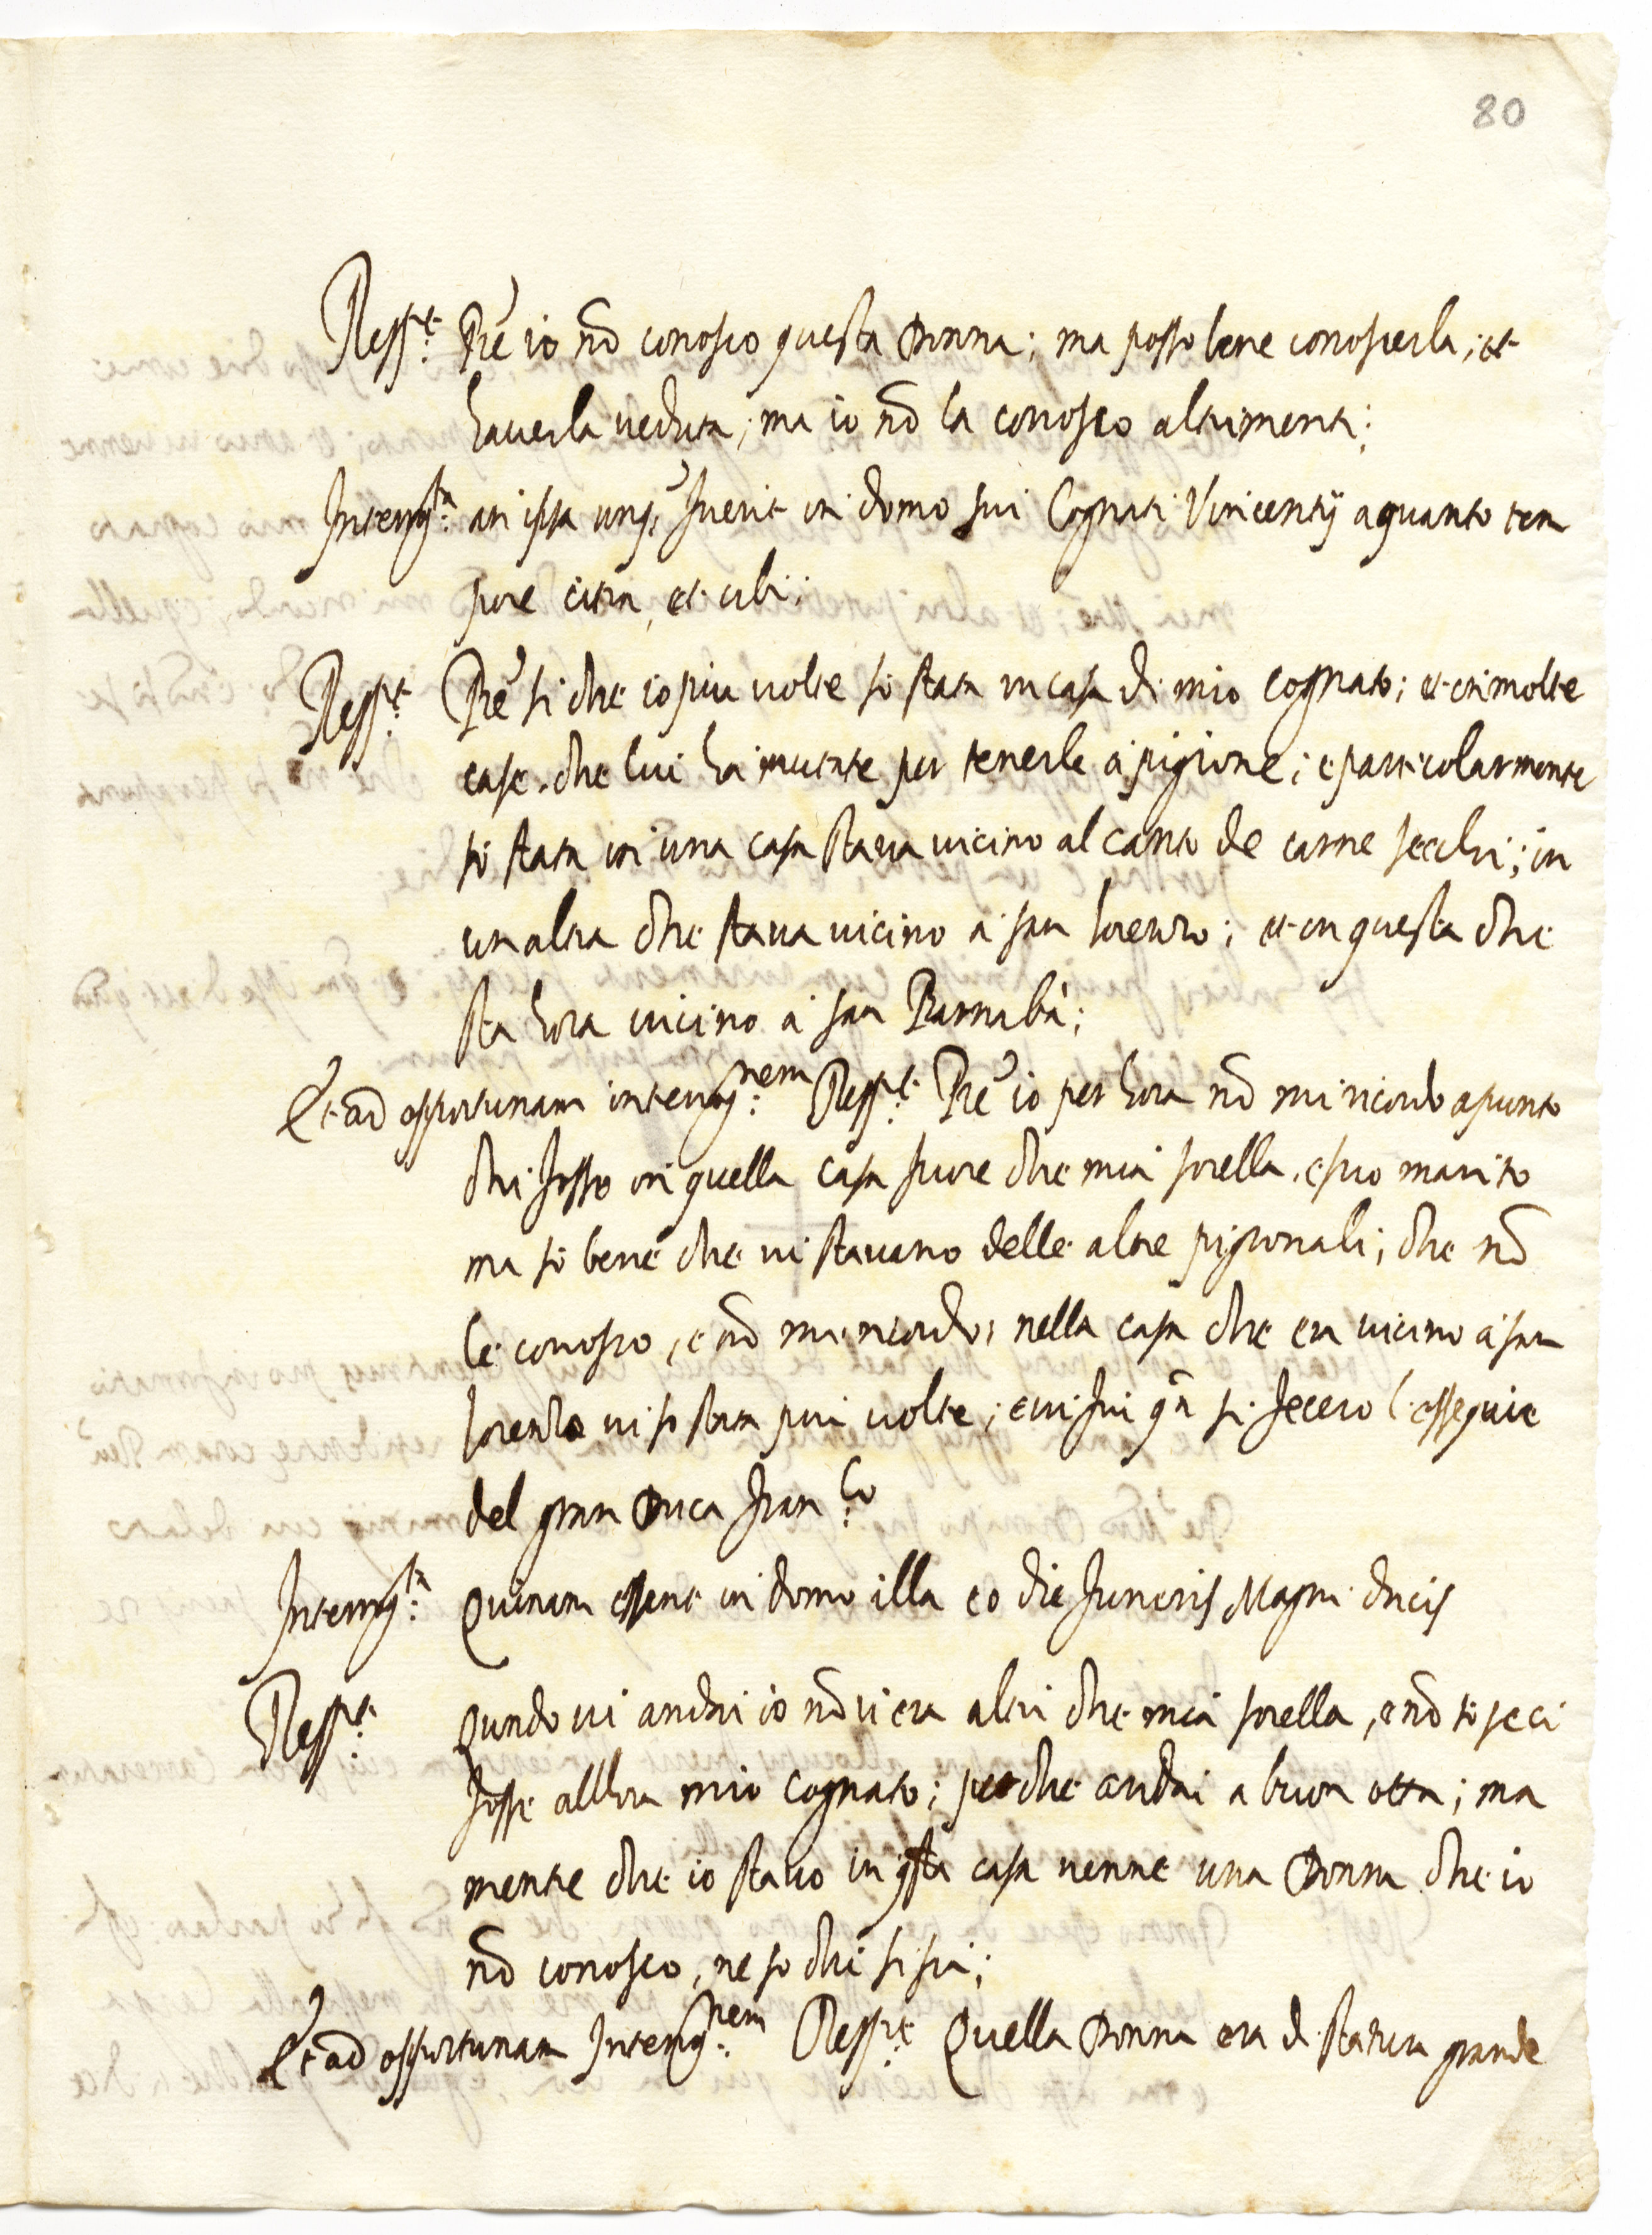 80
Resp.t Pre io nō conosco questa Donna; ma posso bene conoscerla; et
hauerla ueduta; ma io nō la conosco altrimenti;
Interrog.ta an ipsa unq̃ fuerit in domo sui Cognati Vincentij a quanto tem
pore citra, et ubi;
Resp.t Pre si che io piu uolte so stata in casa di mio cognato; et in molte
case che lui ha mutate per tenerle a pigione; e particolarmente
so stata in una casa staua uicino al canto de carne secchi; in
unaltra che staua uicino a san lorenzo; et in questa che
sta hora uicino a san Barnabà;
Et ad opportunam interrog.nem Resp.t Pre io per hora nō mi ricordo apunto
chi fosse in quella casa fuore che mia sorella, e suo marito
ma so bene che ui stauano delle altre pigionali; che nō
le conosco, e nō mi ricordo; nella casa che era uicino a san
lorenzo ui so stata piu uolte; e ui fui qñ si fecero l essequie
del gran Duca Fran.co
Interrog.ta Quinam essent in domo illa eo die funeris Magni ducis
Resp.t Quando ui andai io nō ui era altri che mia sorella, e nō so se ci
fosse allhora mio cognato; perche andai a buon otta; ma
mentre che io stauo in q̃sta casa uenne una Donna che io
nō conosco, ne so chi si sia;
Et ad opportunam Interrog.nem Resp.t Quella Donna era di statura grande